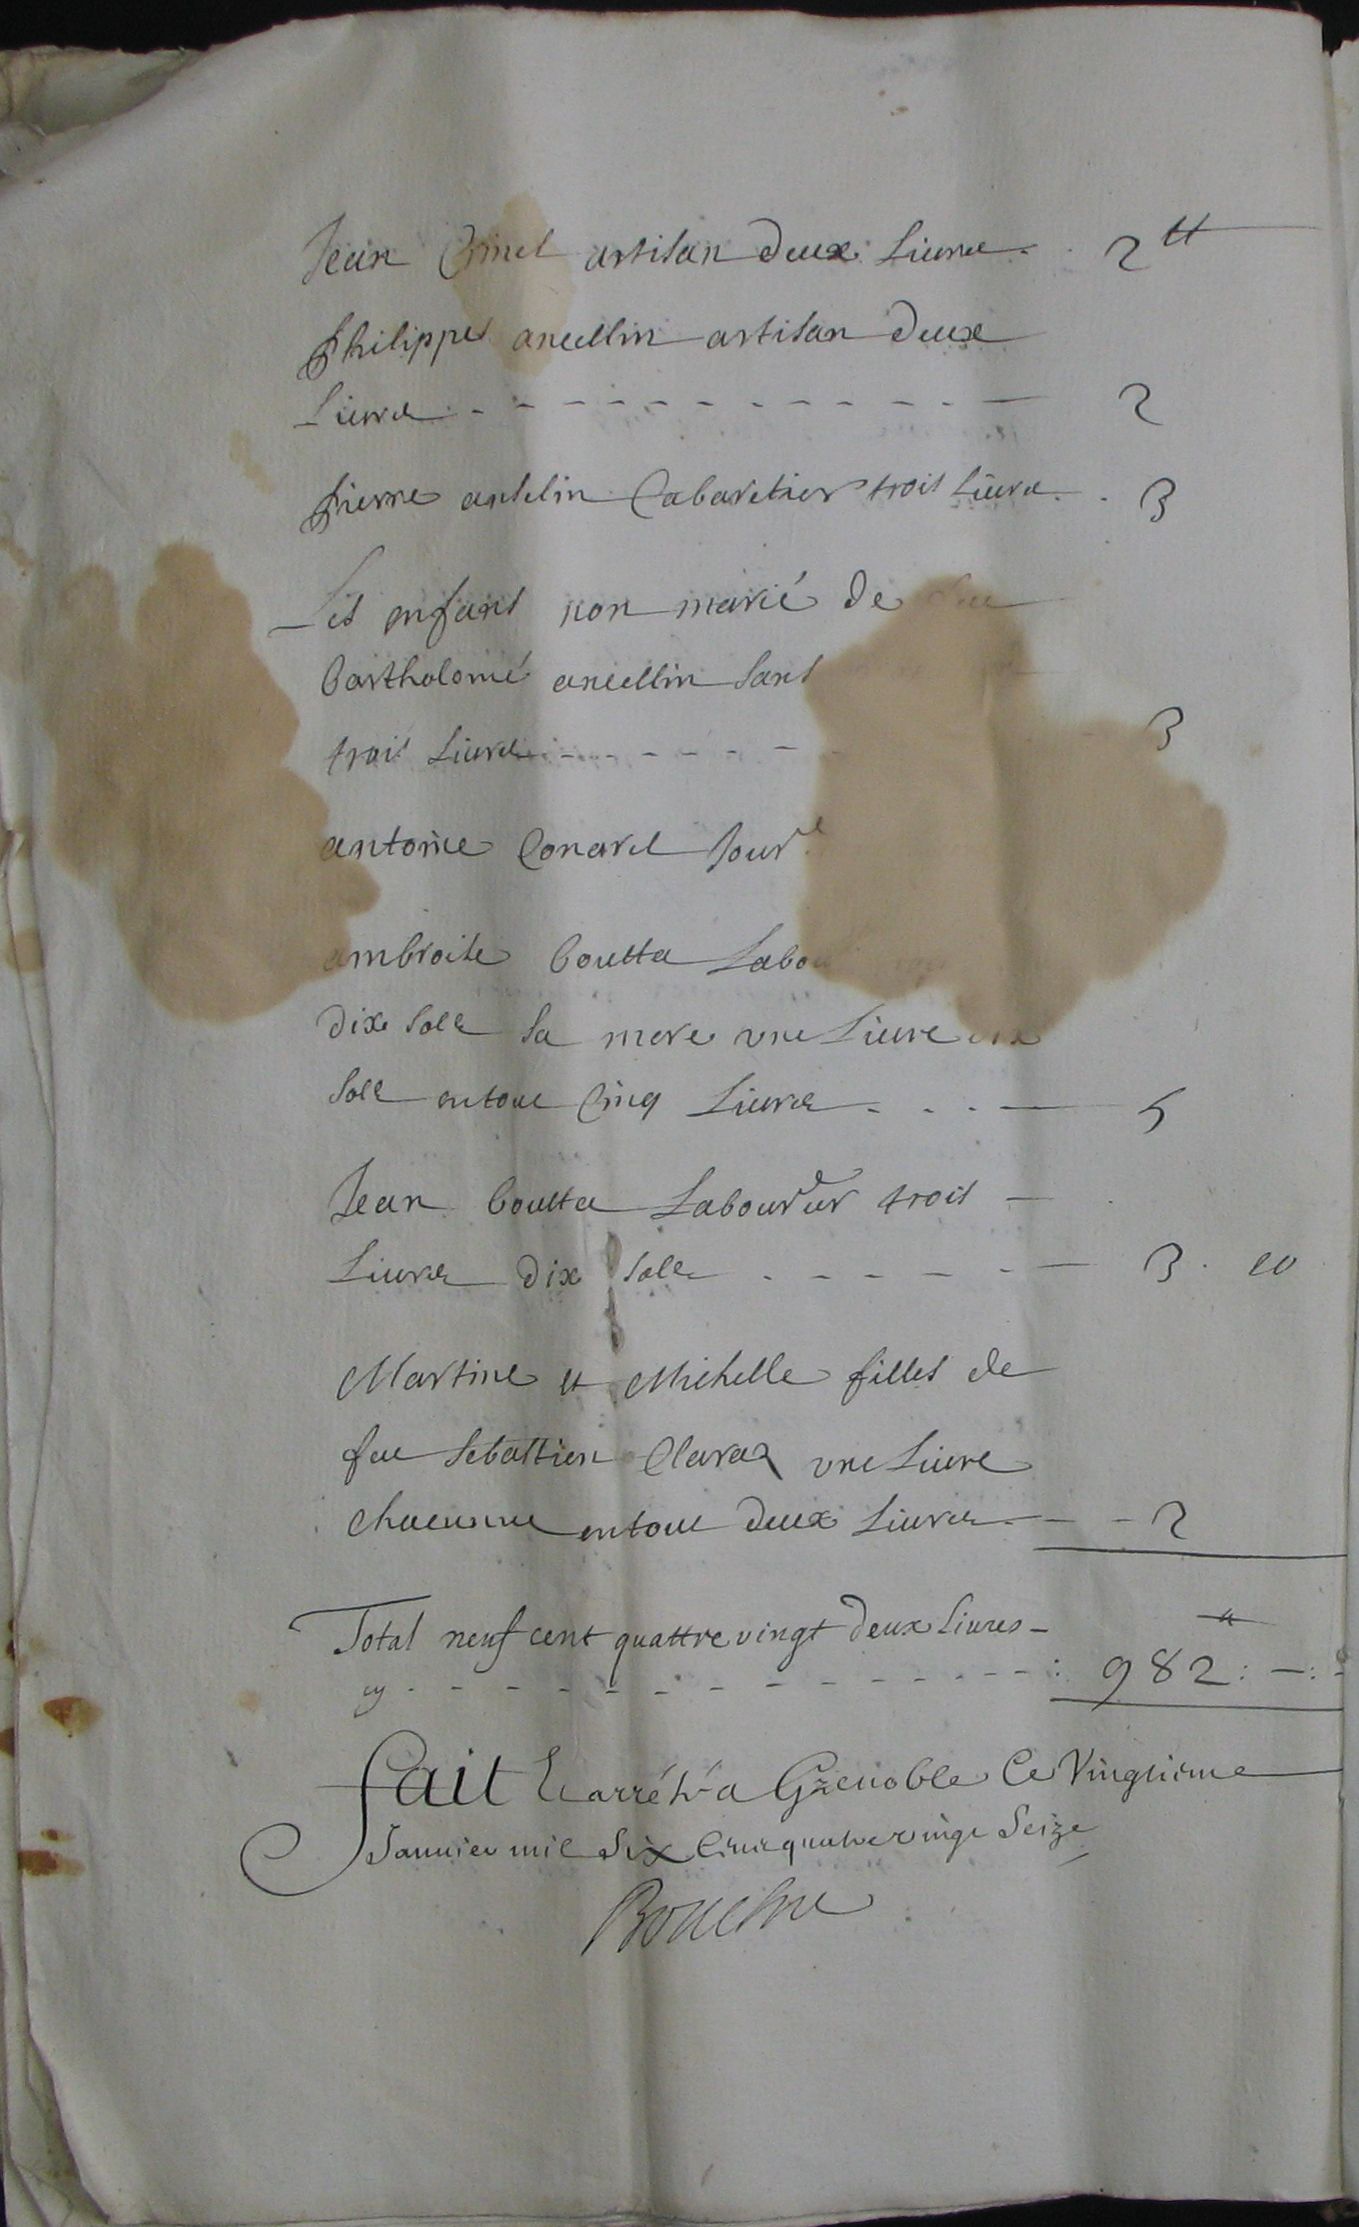 Jean artisan deux livres 2 ₶
Philippes ancellin artisan deux
Livres 2
Pierre anselin Cabaretier trois livres 3
Les enfans non marié de feu
Barthelomé ancellin sans
trois Livres 3
antoine Conarel Jourᵉ
ambroise boutta Labou
dix sols Sa mere une Livre dix
sols en tout Cinq Livres 5
Jean boutta Laboureur trois
Livres dix sols 3 . 10
Martine et Michelle filles de
feu Sebastien Claraz une Livre
chacune en tout deux Livres 2
Total neuf cent quattre vingt deux Livres
cy : 982 ₶ : — : -
fait & arrété a Grenoble Ce Vingtieme
Janvier mil Six Cent quatre vingt Seize